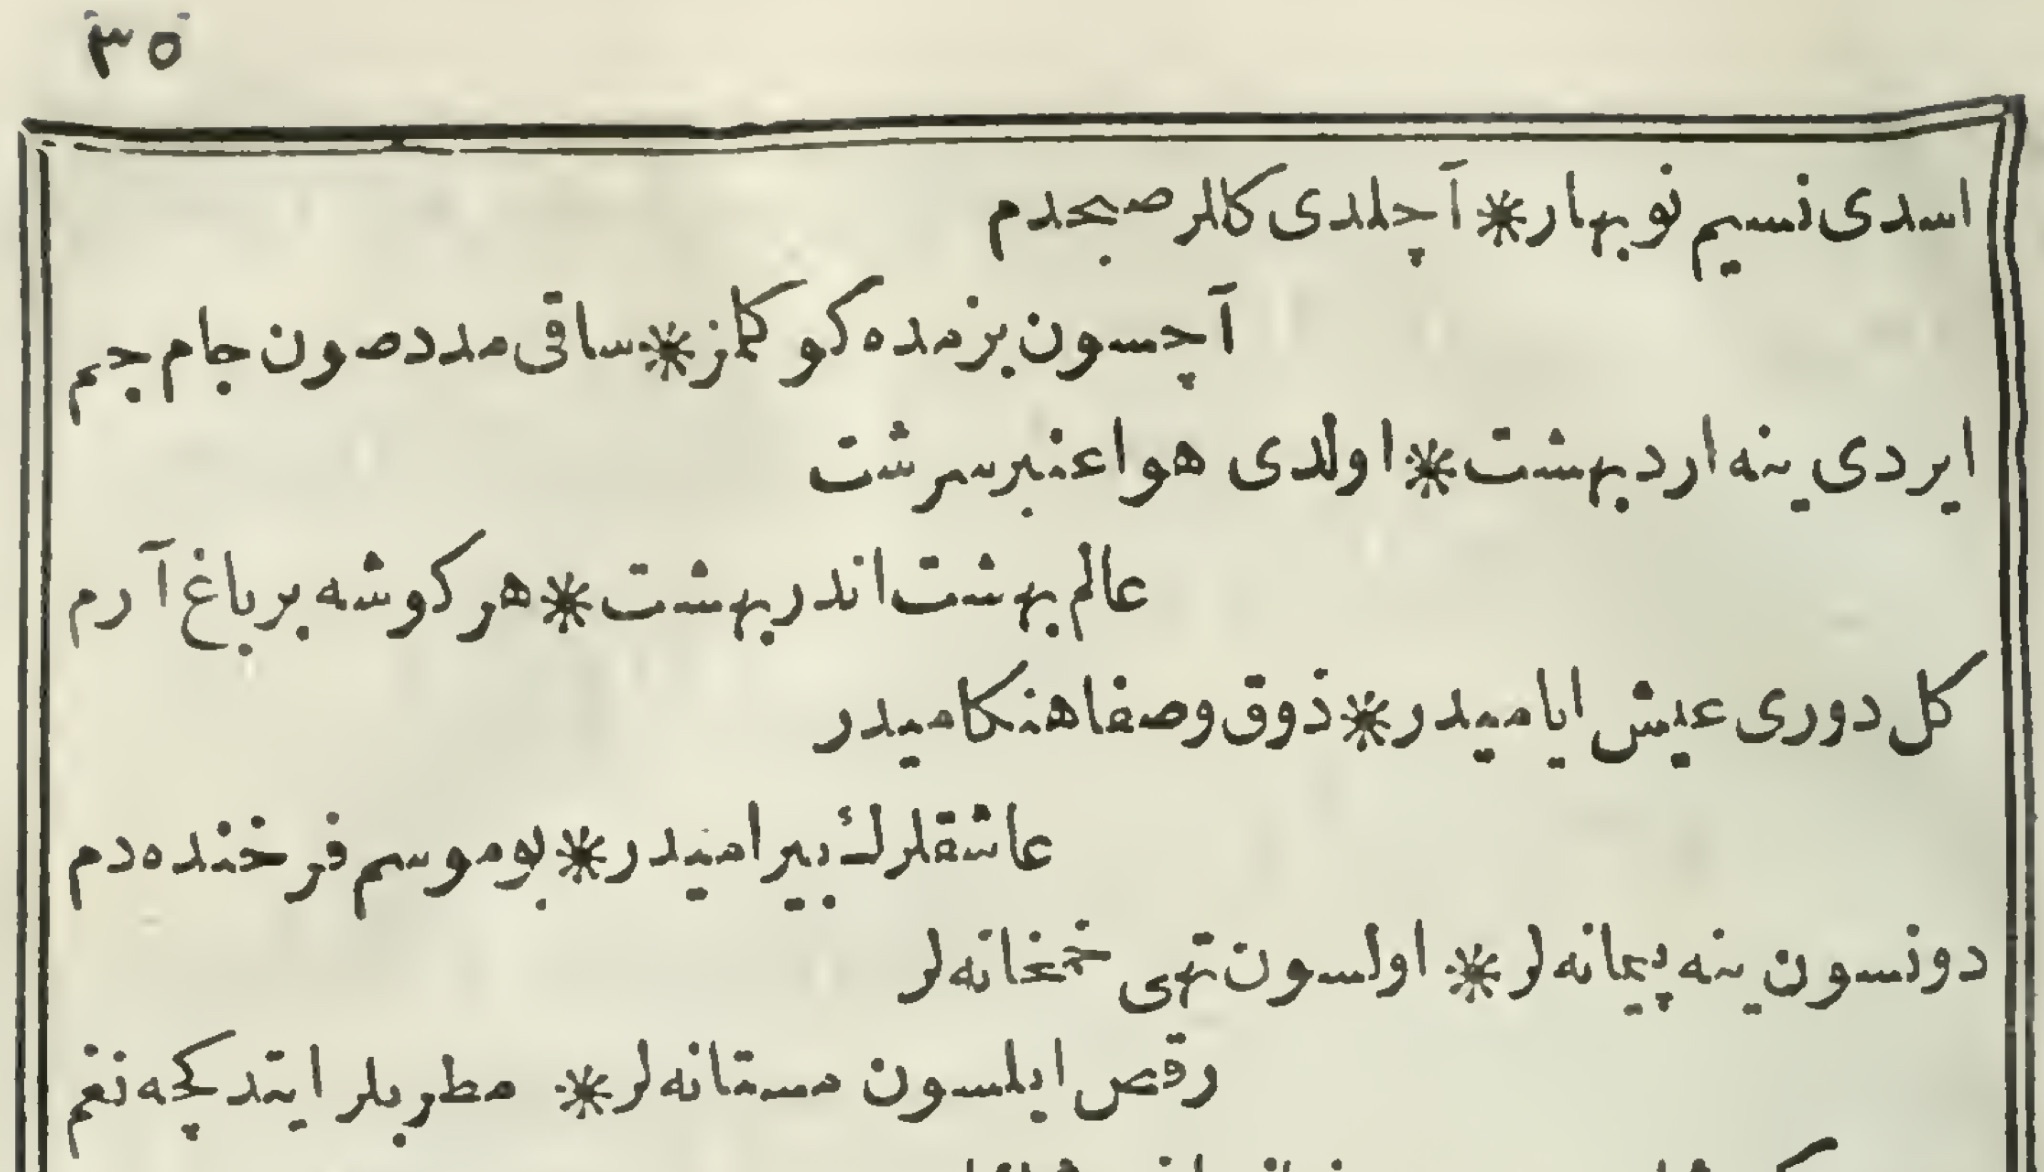 ٣٥
اسدی نسیم نوبهار * آچلدی کللر صبحدم
آچسون بزمده کوکلمز * ساقی مدد صون جام جم
ایردی ینه اردبهشت * اولدی هوا عنبرسرشت
عالم بهشت اندر بهشت * هر کوشه بر باغ آرم
کل دوری عیش ایامیدر * ذوق و صفا هنکامیدر
عاشقلرڭ بیرامیدر * بو موسم فرخنده دم
دونسون ینه پیمانه‌لر * اولسون تهی خمخانه‌لر
رقص ایلسون مستانه‌لر * مطربلر ایتدکچه نغم